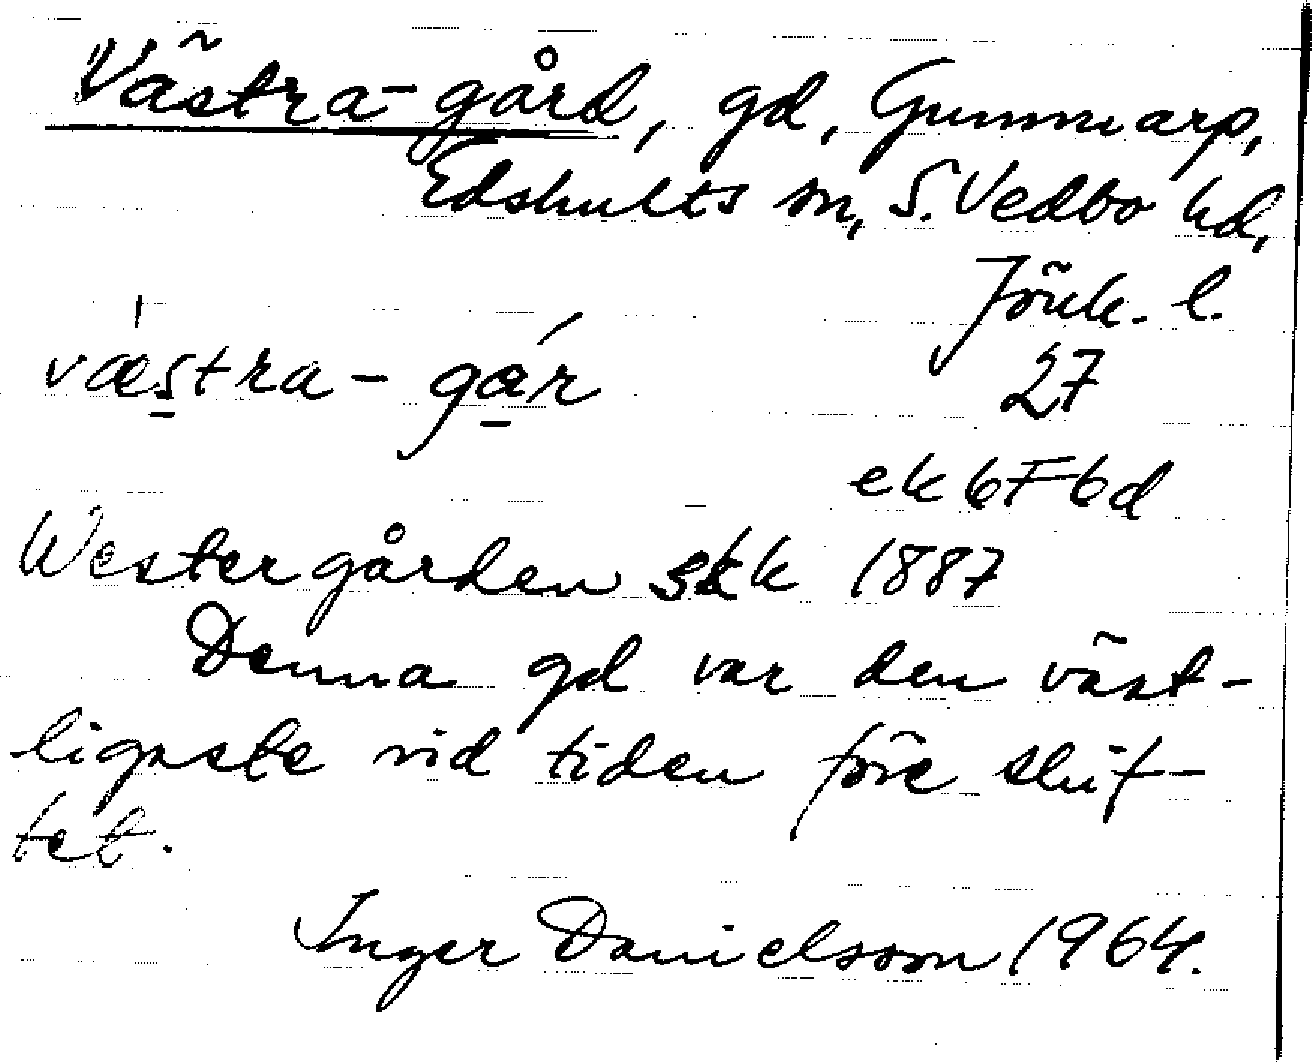 Västra-gård, gd, Gummarp,
Edshults sn, S. Vedbo hd,
Jönk. l.
væstra-gár
27
ek 6F6d
Westergården skk 1887
Denna gd var den väst-
ligaste vid tiden före skif-
tet.
Inger Danielsson 1964.